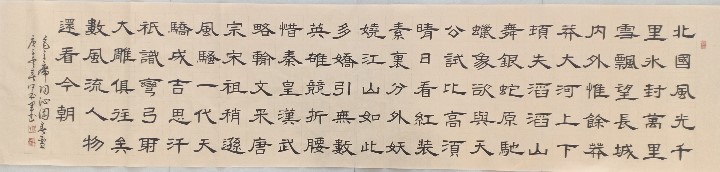 北國風光千
里冰封萬里
雪飄望長城
內外惟餘莽
莽大河上下
頓失滔滔山
舞銀蛇原馳
蠟象欲與天
公試比高須
晴日看紅裝
素裹分外妖
嬈江山如此
多嬌引無數
英雄競折腰
惜秦皇漢武
略輸文采唐
宗宋祖稍遜
風騷一代天
驕成吉思汗
祇識彎弓射
大雕俱往矣
數風流人物
還看今朝
毛主席詞沁園春雪
庚子年